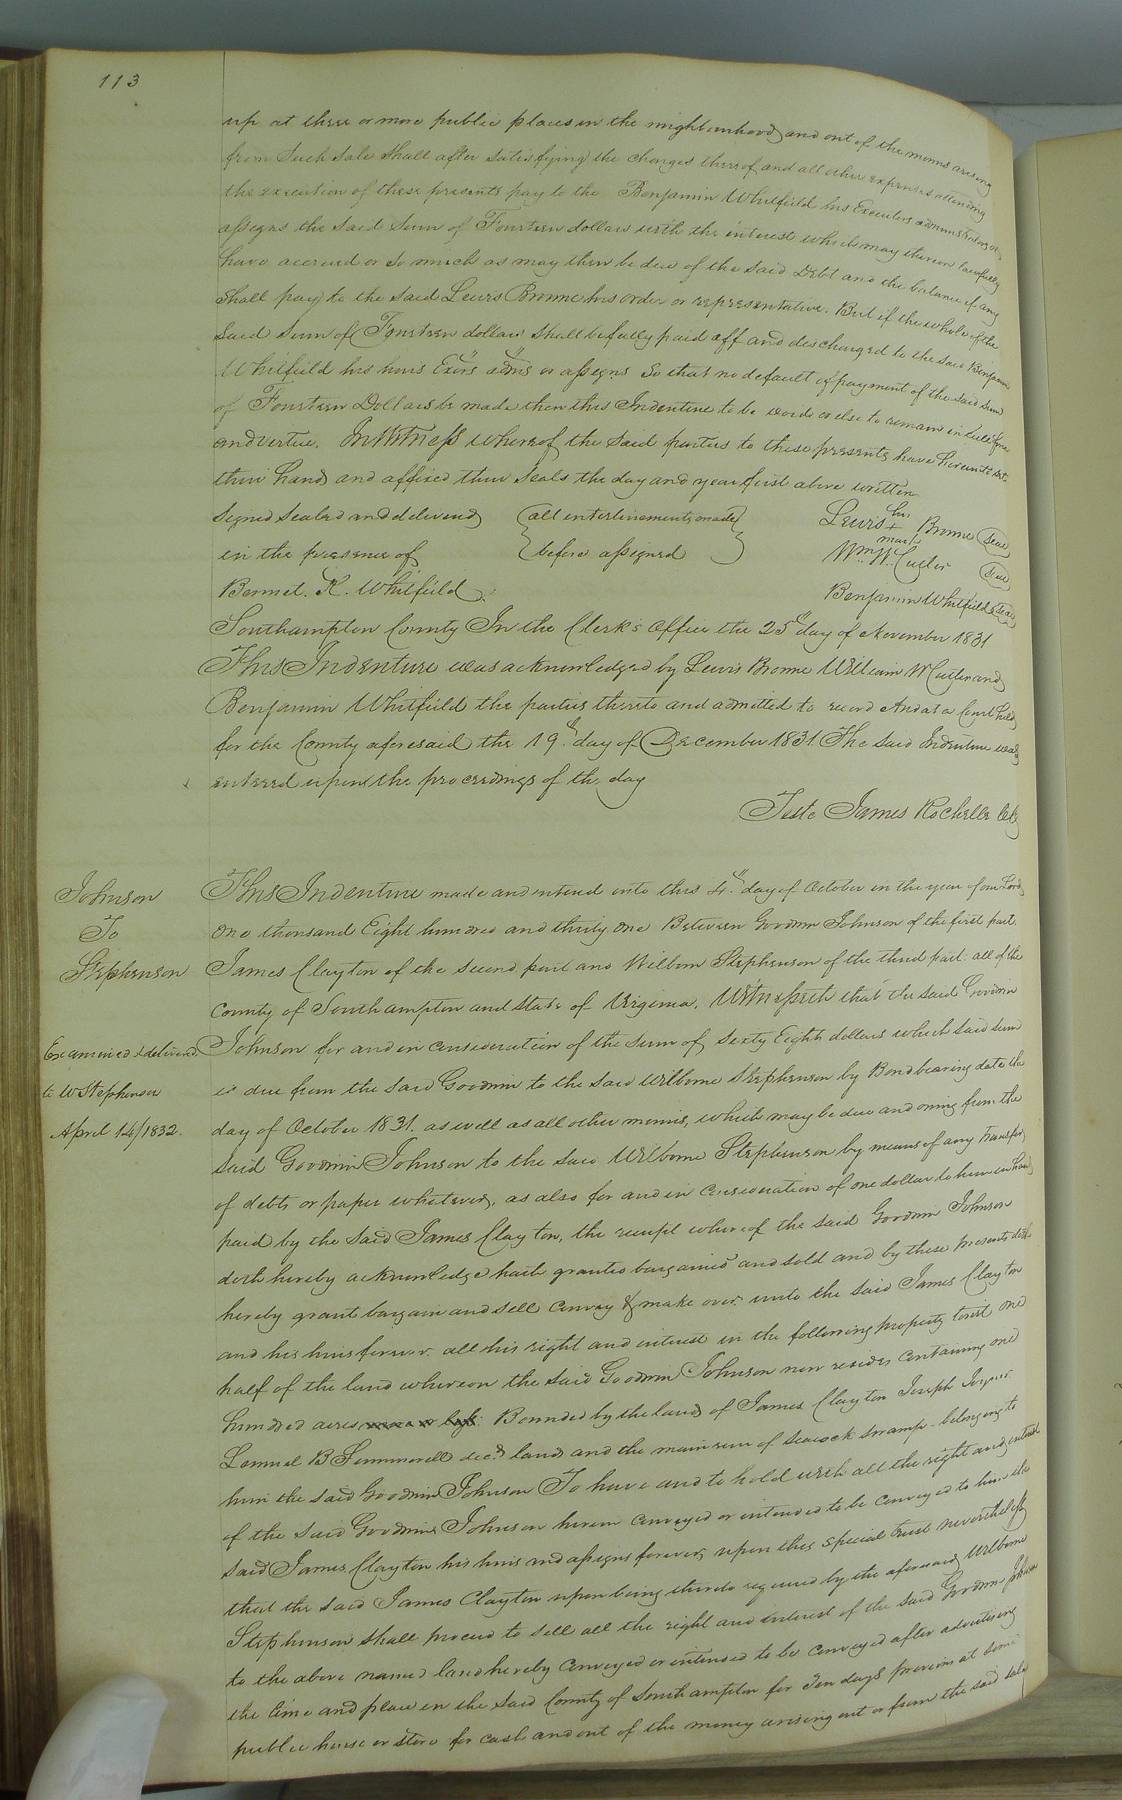 113
up at three or more public places in the neighbourhood and out of the monies arising
from Such Sale Shall after Satisfying the charges thereof and all other expenses attending
the execution of these presents pay to the Benjamin Whitfield his Executors administrators or
assigns the Said Sum of Fourteen dollars with the interest which may thereon lawfully
have accrued or So much as may then be due of the Said Debt and the balance if any
Shall pay to the Said Lewis Browne his order or representative. But if the whole of the
Said Sum of Fourteen dollars Shall be fully paid off and discharged to the Said Benjamin
Whitfield his heirs Exors adms or assigns So that no default of payment of the Said Sum
of Fourteen Dollars be made then this Indenture to be void or else to remain in full force
and vertue. In Witness whereof the Said parties to these presents have hereunto set
their hands and affixed their Seals the day and year first above written
Signed Sealed and delivered (all interlinements made Lewis his + mark Browne Seal
in the presence of before assigned) Wm W. Cutler Seal
Bennet. K. Whitfield Benjamin Whitfield Seal
Southampton County In the Clerk's Office the 25th day of November 1831
This Indenture was acknowledged by Lewis Browne William W Cutler and
Benjamin Whitfield the parties thereto and admitted to record And at a Court held
for the County aforesaid the 19th day of December 1831. The Said Indenture was
entered upon the proceedings of the day
Teste James Rochelle Clk
Johnson
To
Stephenson
Examined & delivered
to W Stephenson
April 14/1832.
This Indenture made and entered into this 4th day of October in the year of our Lord
One thousand Eight hundred and thirty one Between Goodwin Johnson of the first part.
James Clayton of the Second part and Wilborn Stephenson of the third part. all of the
County of Southampton and State of Virginia. Witnesseth that the said Goodwin
Johnson for and in consideration of the sum of Sixty Eight dollars which Said Sum
is due from the Said Goodwin to the Said Wilborne Stephenson by Bond bearing date the
day of October 1831. as well as all other monies, which may be due and owing from the
Said Goodwin Johnson to the Said Wilborne Stephenson by means of any transfer
of debts or paper whatever, as also for and in consideration of one dollar to him in hand
paid by the Said James Clayton, the receipt whereof the Said Goodwin Johnson
doth hereby acknowledge hath granted bargained and sold and by these presents doth
hereby grant bargain and sell convey & make over unto the Said James Clayton
and his heirs forever. all his right and interest in the following property towit one
half of the land whereon the Said Goodwin Johnson now resides containing one
hundred acres Bounded by the lands of James Clayton Joseph Joyner
Lemuel B Summerell decd land and the main run of Seacock Swamp. belonging to
him the Said Goodwin Johnson To have and to hold with all the right and interest
of the Said Goodwin Johnson herein conveyed or intended to be conveyed to him the
Said James Clayton his heirs and assigns forever, upon this special trust nevertheless
that the Said James Clayton upon being thereto required by the aforesaid Wilborne
Stephenson Shall proceed to Sell all the right and interest of the Said Goodwin Johnson
to the above named land hereby conveyed or intended to be conveyed after advertising
the time and place in the Said County of Southampton for Ten days previous at some
public house or store for cash and out of the money arising out or from the said sale